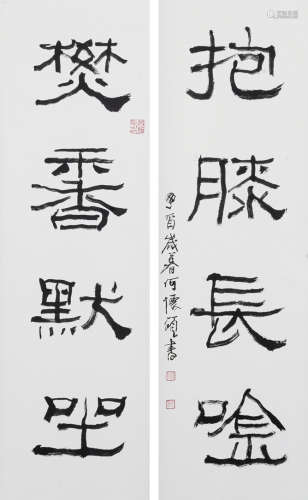 抱膝長唫
燓香默坐
酉歲暮何懷碩書